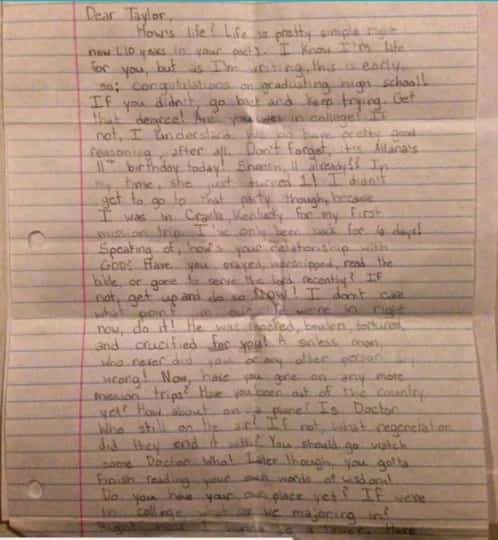 Dear Taylor,
How's life? Life is pretty simple right
now (10 years in your past). I know I'm late
for you, but as I'm writing, this is early,
so; congratulations on graduating high school!
If you didn't, go back and keep trying. Get
that degree! Are you in college? If
not, I understand. We do have pretty good
reasoning, after all. Don't forget, it's
11th birthday today! Sheesh, 11 already?! In
my time, she just turned 1! I didn't
get to go to that party though, because
I was in Kentucky for my first
mission trip. I've only been back for 6 days!
Speaking of, how's your relationship with
GOD? Have you prayed, worshipped, read the
bible, or gone to serve the lord recently? If
not, get up and do so Now! I don't care
what point in our life we're in right
now, do it! He was mocked, beaten, tortured,
and crucified for you! A sinless man,
who never did you or any other person
wrong! Now, have you gone on any more
mission trips? Have you been out of the country
yet? How about on a plane? Is Doctor
Who still on the air? If not, what regeneration
did they end it with? You should go watch
some Doctor Who! Later though, you gotta
finish reading your own words of wisdom!
Do you have your own place yet? If we're
in college what are we majoring in?
Right now I wanna be a